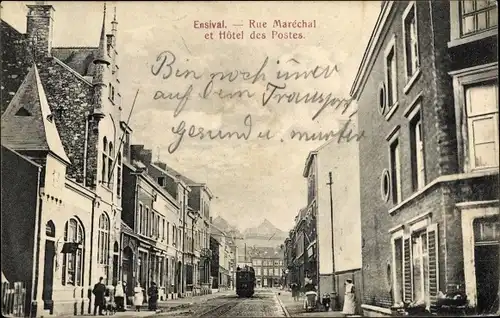 Ensival. — Rue Maréchal
et Hôtel des Postes.
Bin noch immer
auf dem Transport
Gesund u. munter